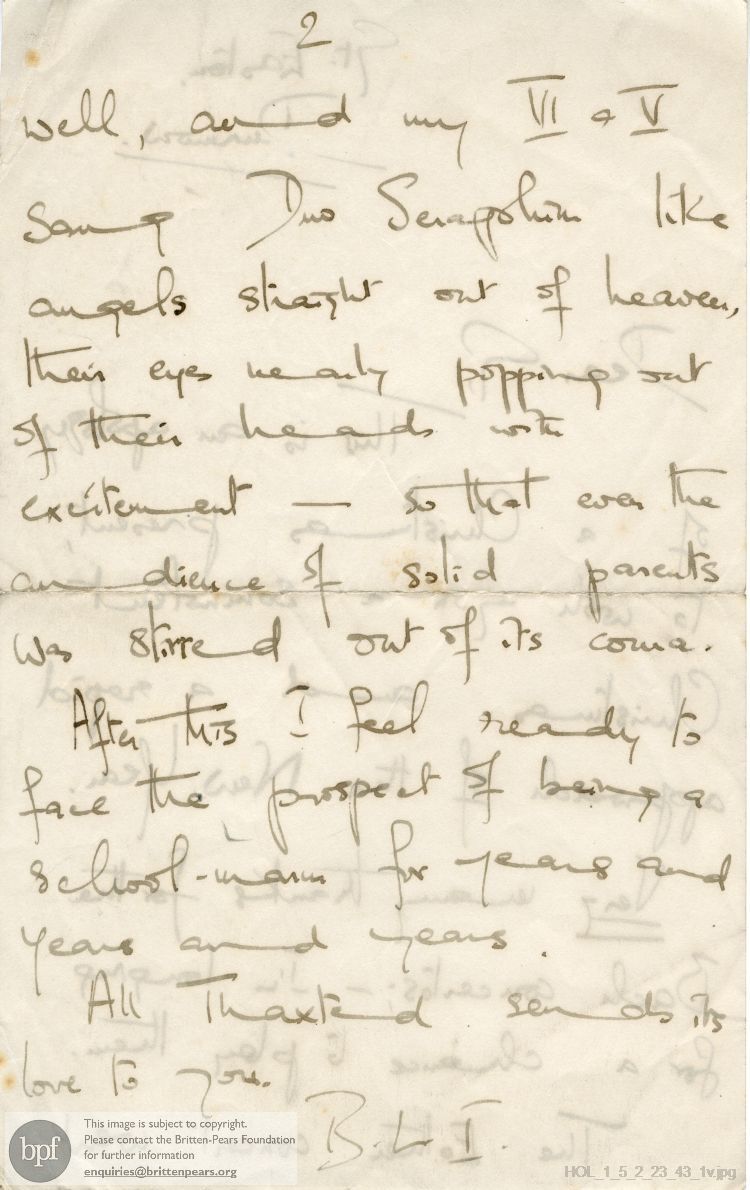 2
well, and my VI & V
sang Duo Seraphim like
angels straight out of heaven,
their eyes nearly popping out
of their heads with
excitement — so that even the
audience of solid parents
was stirred out of its coma.
After this I feel ready to
face the prospect of being a
school-marm for years and
years and years.
All Thaxted sends its
love to you.
B. L I.
bpf
This image is subject to copyright.
Please contact the Britten-Pears Foundation
for further information
enquiries@brittenpears.org
HOL_1_5_2_23_43_1v.jpg